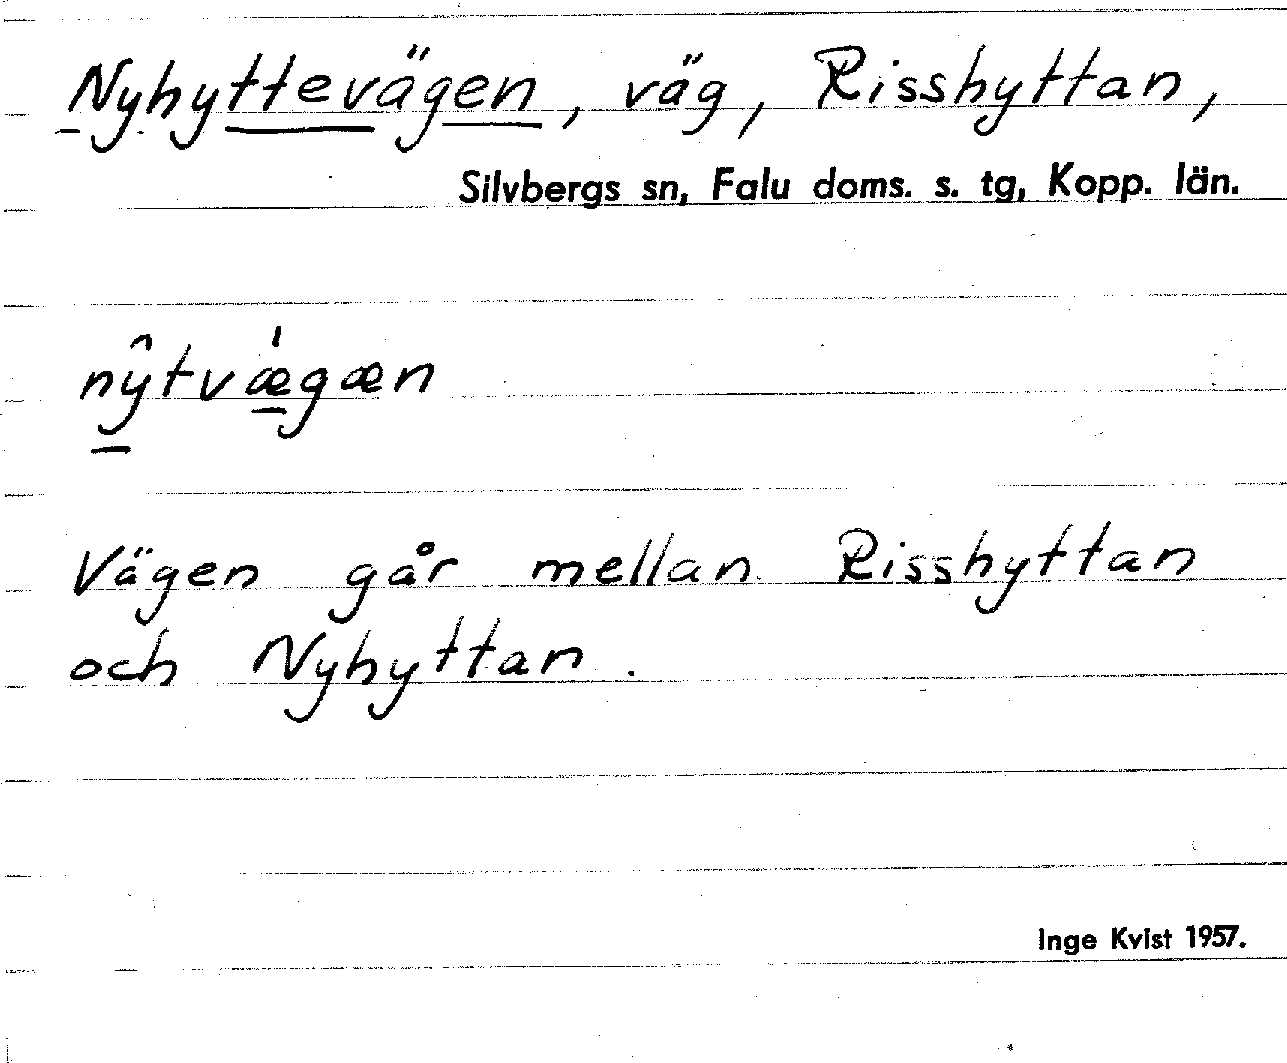 Nyhyttevägen, väg, Risshyttan,
Silvbergs sn, Falu doms. s. tg, Kopp. län.
nŷtvǽgæn
Vägen går mellan Risshyttan
och Nyhyttan.
Inge Kvist 1957.